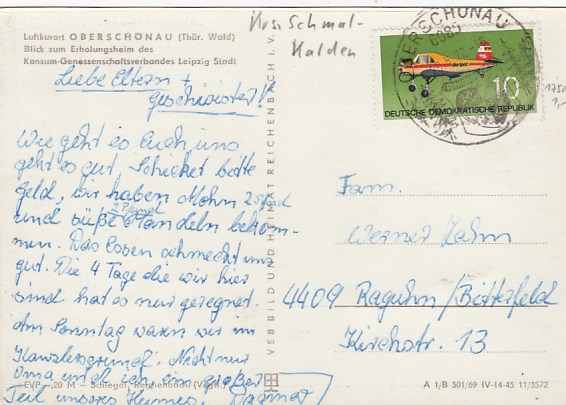 Luftkurort OBERSCHÖNAU (Thür. Wald)
Blick zum Erholungsheim des
Konsum-Genossenschaftsverbandes Leipzig Stadt
Krs. Schmal-
kalden
OBERSCHÖNAU
6801
10
DEUTSCHE DEMOKRATISCHE REPUBLIK
Liebe Eltern +
Geschwister!
Wie geht es Euch, uns
geht es gut. Schicket bitte
Geld, wir haben Mohn 2 Pfd
und süße Mandeln bekom-
men. Das Essen schmeckt uns
gut. Die 4 Tage die wir hier
sind hat es nur geregnet.
Am Sonntag waren wir im
Kanzlersgrund. Nicht nur
Oma und ich, ein großer
Teil unseres Heimes. Dagmar
VEB BILD UND HEIMAT REICHENBACH i. V.
Fam.
Werner Jahn
4409 Raguhn/Bitterfeld
Kirchstr. 13
EVP -,20 M — Schlegel, Reichenbach (Vogtl.)
A 1/B 501/69 IV-14-45 11/3572